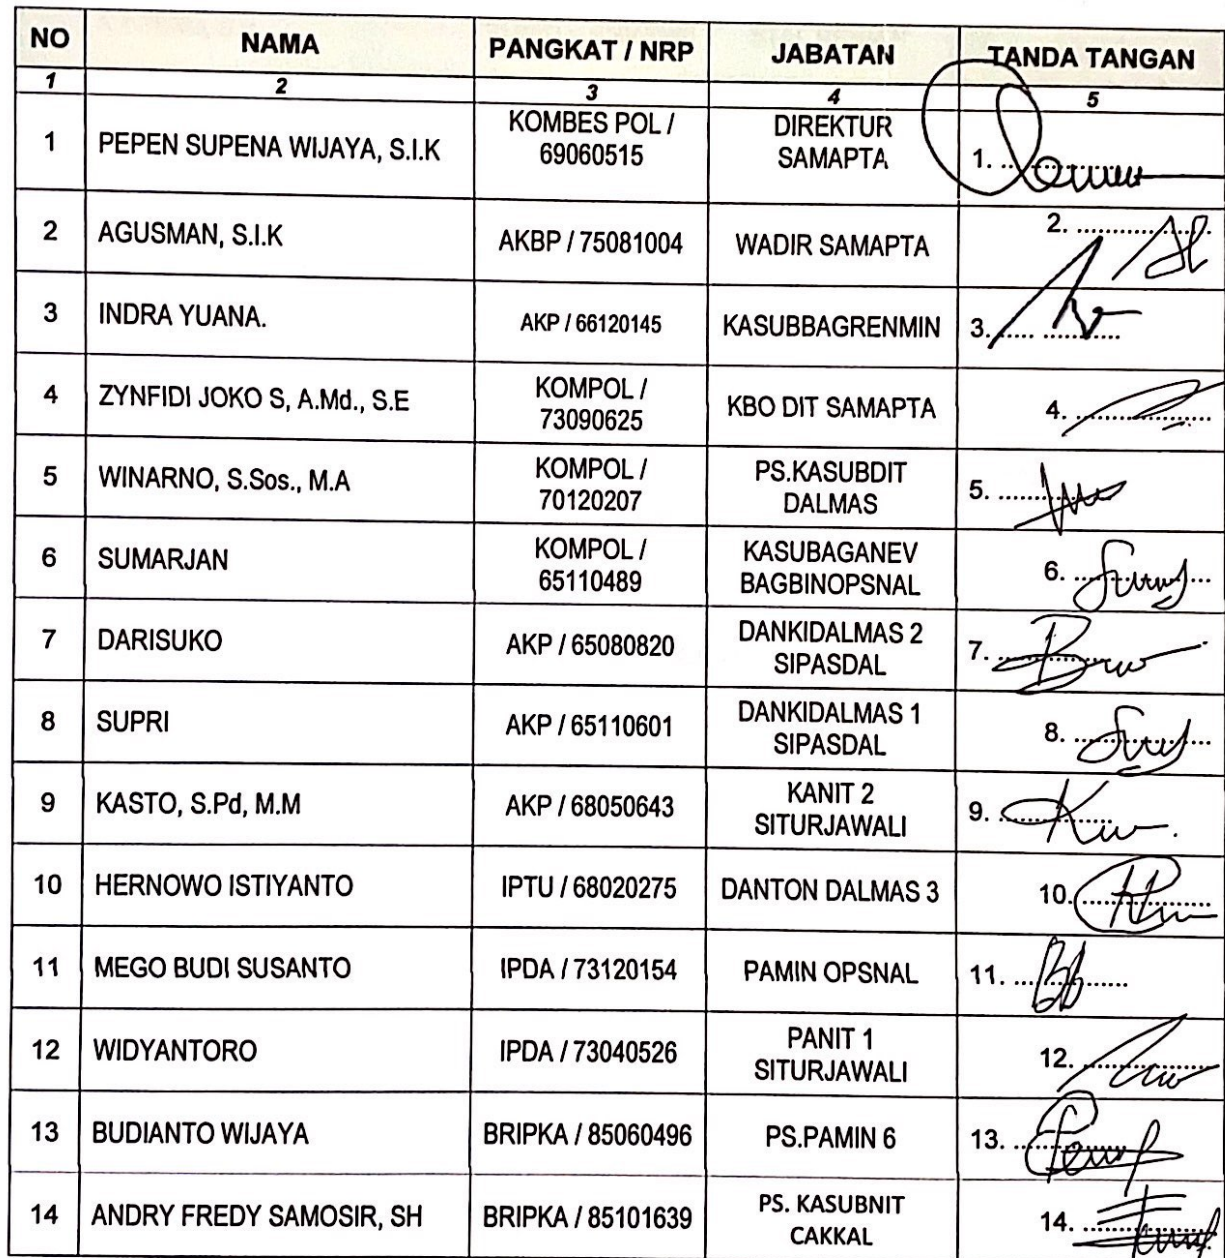 NO NAMA PANGKAT / NRP JABATAN TANDA TANGAN
1 2 3 4 5
1 PEPEN SUPENA WIJAYA, S.I.K KOMBES POL / 69060515 DIREKTUR SAMAPTA 1. ................
2 AGUSMAN, S.I.K AKBP / 75081004 WADIR SAMAPTA 2. ................
3 INDRA YUANA. AKP / 66120145 KASUBBAGRENMIN 3. ................
4 ZYNFIDI JOKO S, A.Md., S.E KOMPOL / 73090625 KBO DIT SAMAPTA 4. ................
5 WINARNO, S.Sos., M.A KOMPOL / 70120207 PS.KASUBDIT DALMAS 5. ................
6 SUMARJAN KOMPOL / 65110489 KASUBAGANEV BAGBINOPSNAL 6. ................
7 DARISUKO AKP / 65080820 DANKIDALMAS 2 SIPASDAL 7. ................
8 SUPRI AKP / 65110601 DANKIDALMAS 1 SIPASDAL 8. ................
9 KASTO, S.Pd, M.M AKP / 68050643 KANIT 2 SITURJAWALI 9. ................
10 HERNOWO ISTIYANTO IPTU / 68020275 DANTON DALMAS 3 10. ................
11 MEGO BUDI SUSANTO IPDA / 73120154 PAMIN OPSNAL 11. ................
12 WIDYANTORO IPDA / 73040526 PANIT 1 SITURJAWALI 12. ................
13 BUDIANTO WIJAYA BRIPKA / 85060496 PS.PAMIN 6 13. ................
14 ANDRY FREDY SAMOSIR, SH BRIPKA / 85101639 PS. KASUBNIT CAKKAL 14. ................